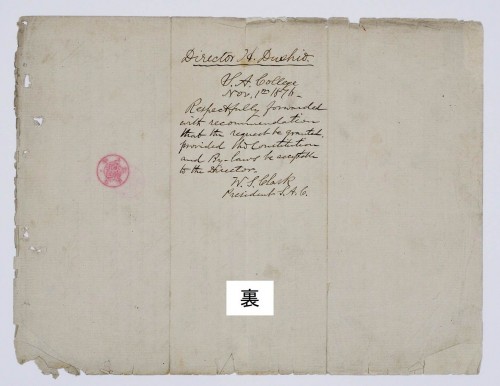 Director H. Dzushio.
S. A. College
Nov. 1st 1876.
Respectfully forwarded
with recommendation
that the request be granted,
provided the Constitution
and By-laws be acceptable
to the Director.
W. S. Clark
President S. A. C.
裏